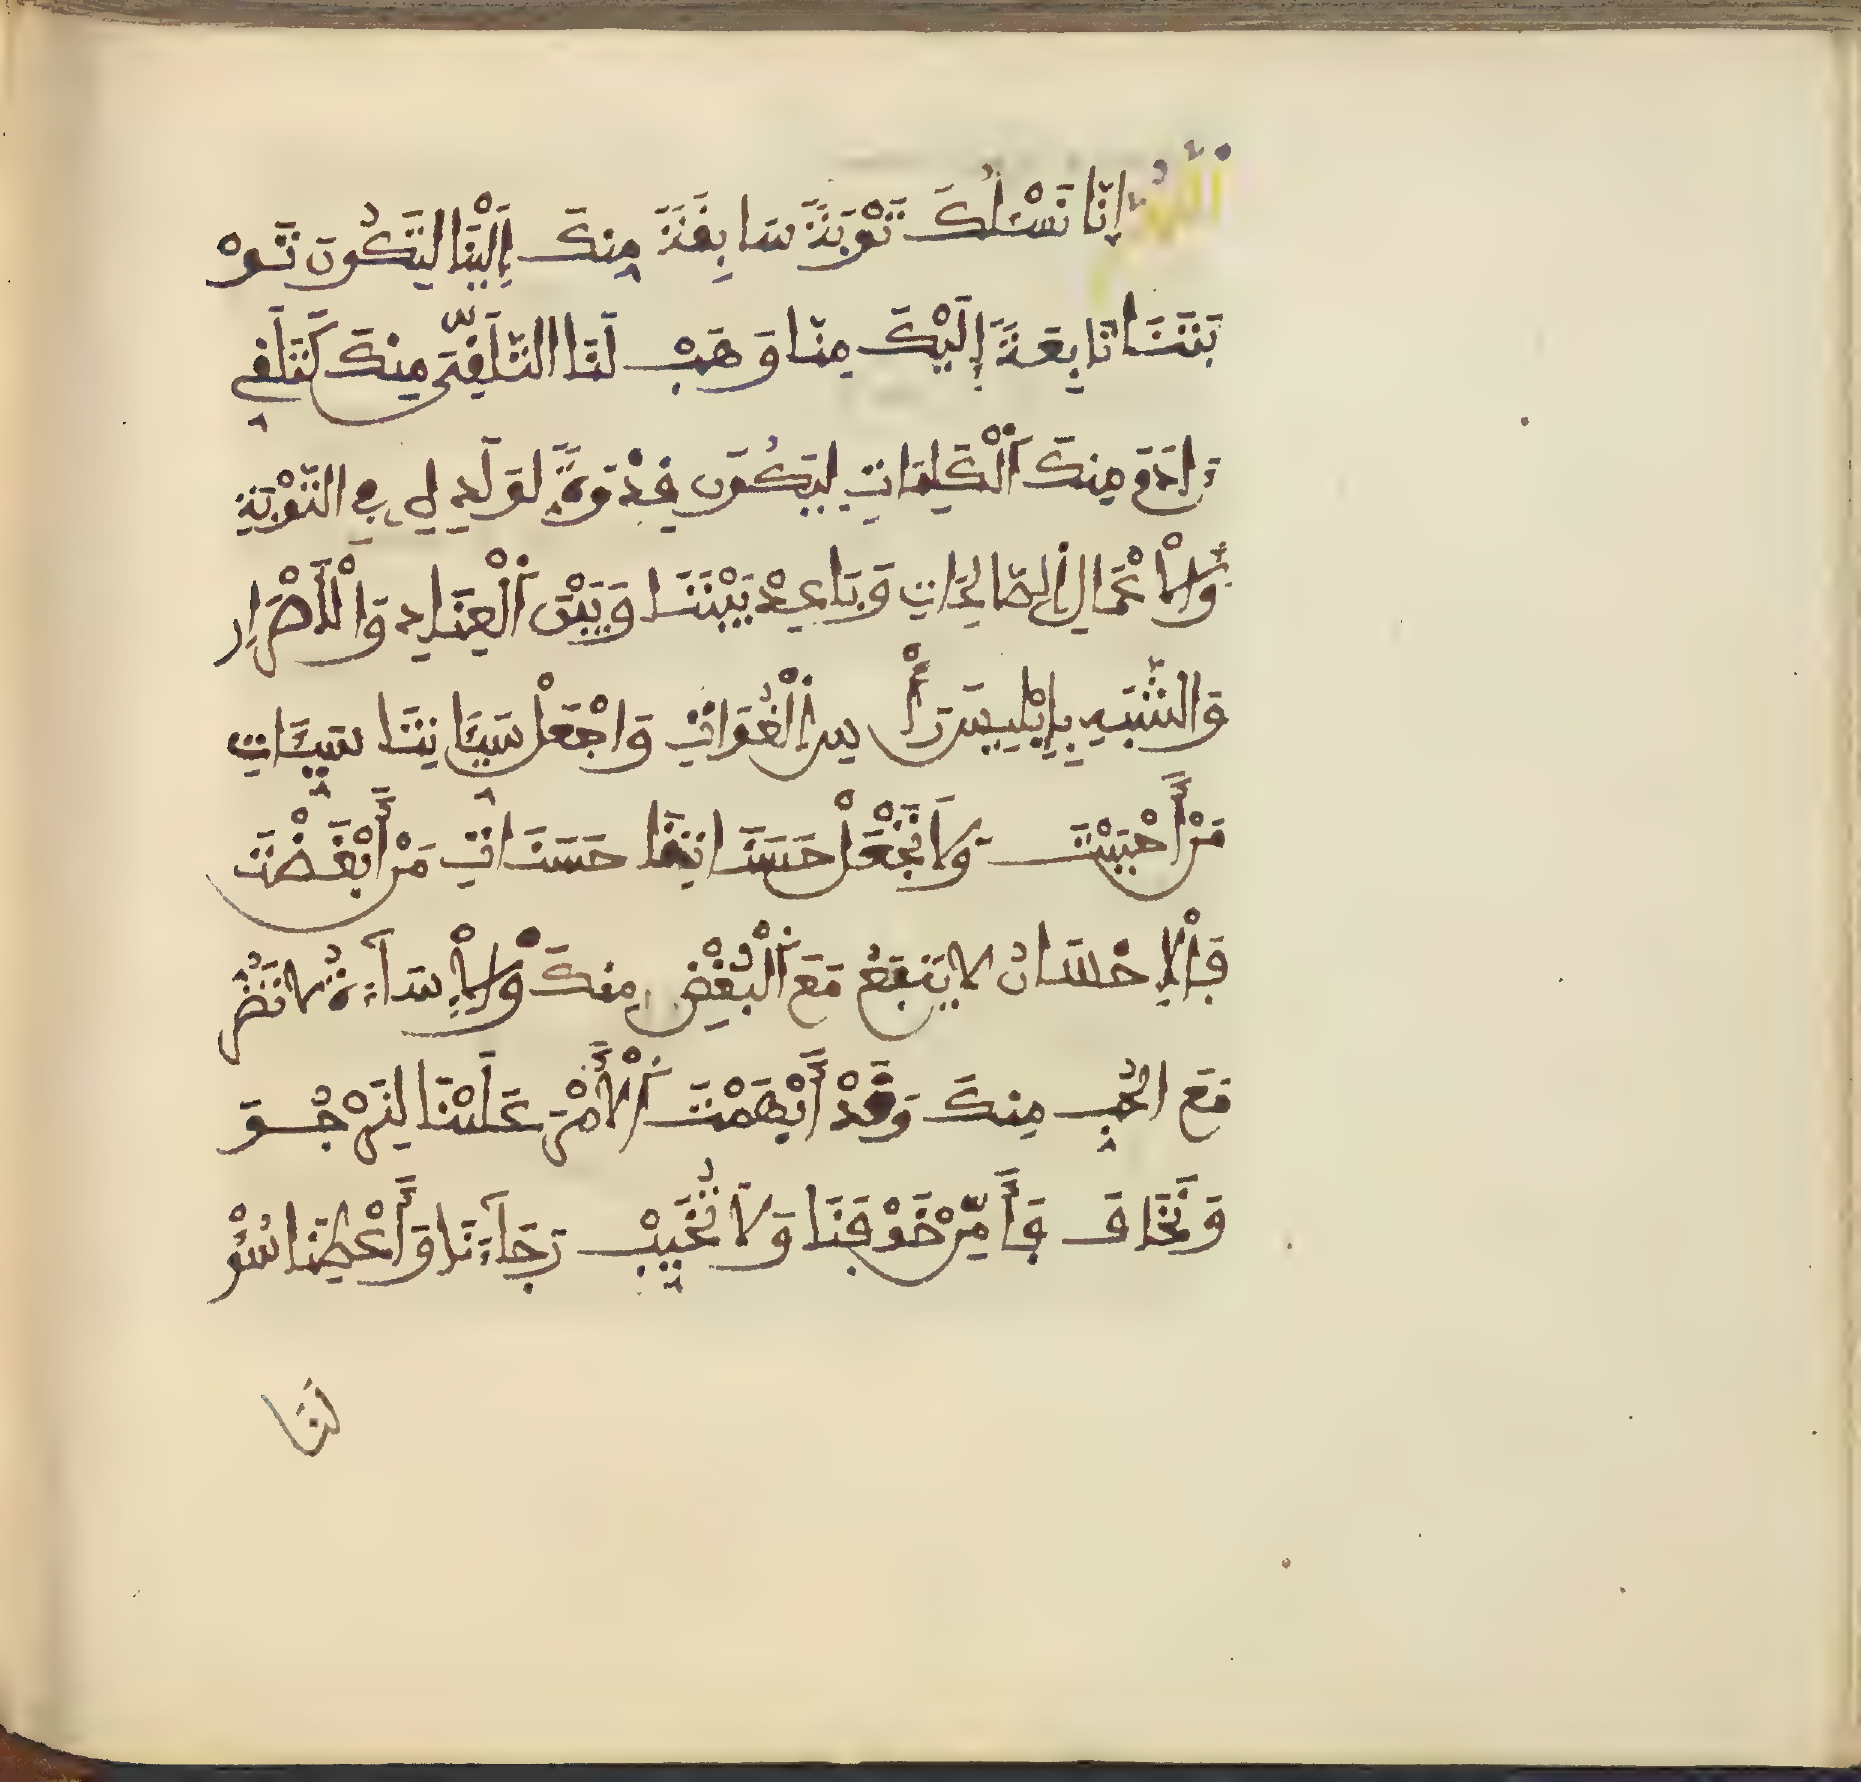 اللهم إِنَّا نَسْـَٔلُكَ تَوْبَةً سَابِقَةً مِنكَ إِلَيْنَا لِتَكُونَ تَوْ
بَتَنَا تَابِعَةً إِلَيْكَ مِنَّا وَهَبْ لَنَا التَّلَقِّيَ مِنكَ كَتَلَقِّي
ءَادَمَ مِنكَ الْكَلِمَاتِ لِيَكُونَ قُدْوَةً لِوَلَدِهِ فِي التَّوْبَةِ
وَالْأَعْمَالِ الصَّالِحَاتِ وَبَاعِدْ بَيْنَنَا وَبَيْنَ الْعِنَادِ وَالْأَصْرَارِ
وَالشَّبَهِ بِإِبْلِيسَ رَأْسِ الْغُوَاتِ وَاجْعَلْ سَيِّـَٔاتِنَا سَيِّـَٔاتِ
مَنْ أَحْبَبْتَ وَلَا تَجْعَلْ حَسَنَاتِنَا حَسَنَاتِ مَنْ أَبْغَضْتَ
فَالْإِحْسَانُ لَا يَنفَعُ مَعَ الْبُغْضِ مِنكَ وَالْإِسَآءَةُ لَا تَضُرُّ
مَعَ الْحُبِّ مِنكَ وَقَدْ أَبْهَمْتَ الْأَمْرَ عَلَيْنَا لِنَرْجُوَ
وَنَخَافَ فَأَمِّنْ خَوْفَنَا وَلَا تُخَيِّبْ رَجَآءَنَا وَأَعْطِنَا سُؤْ
لَنَا